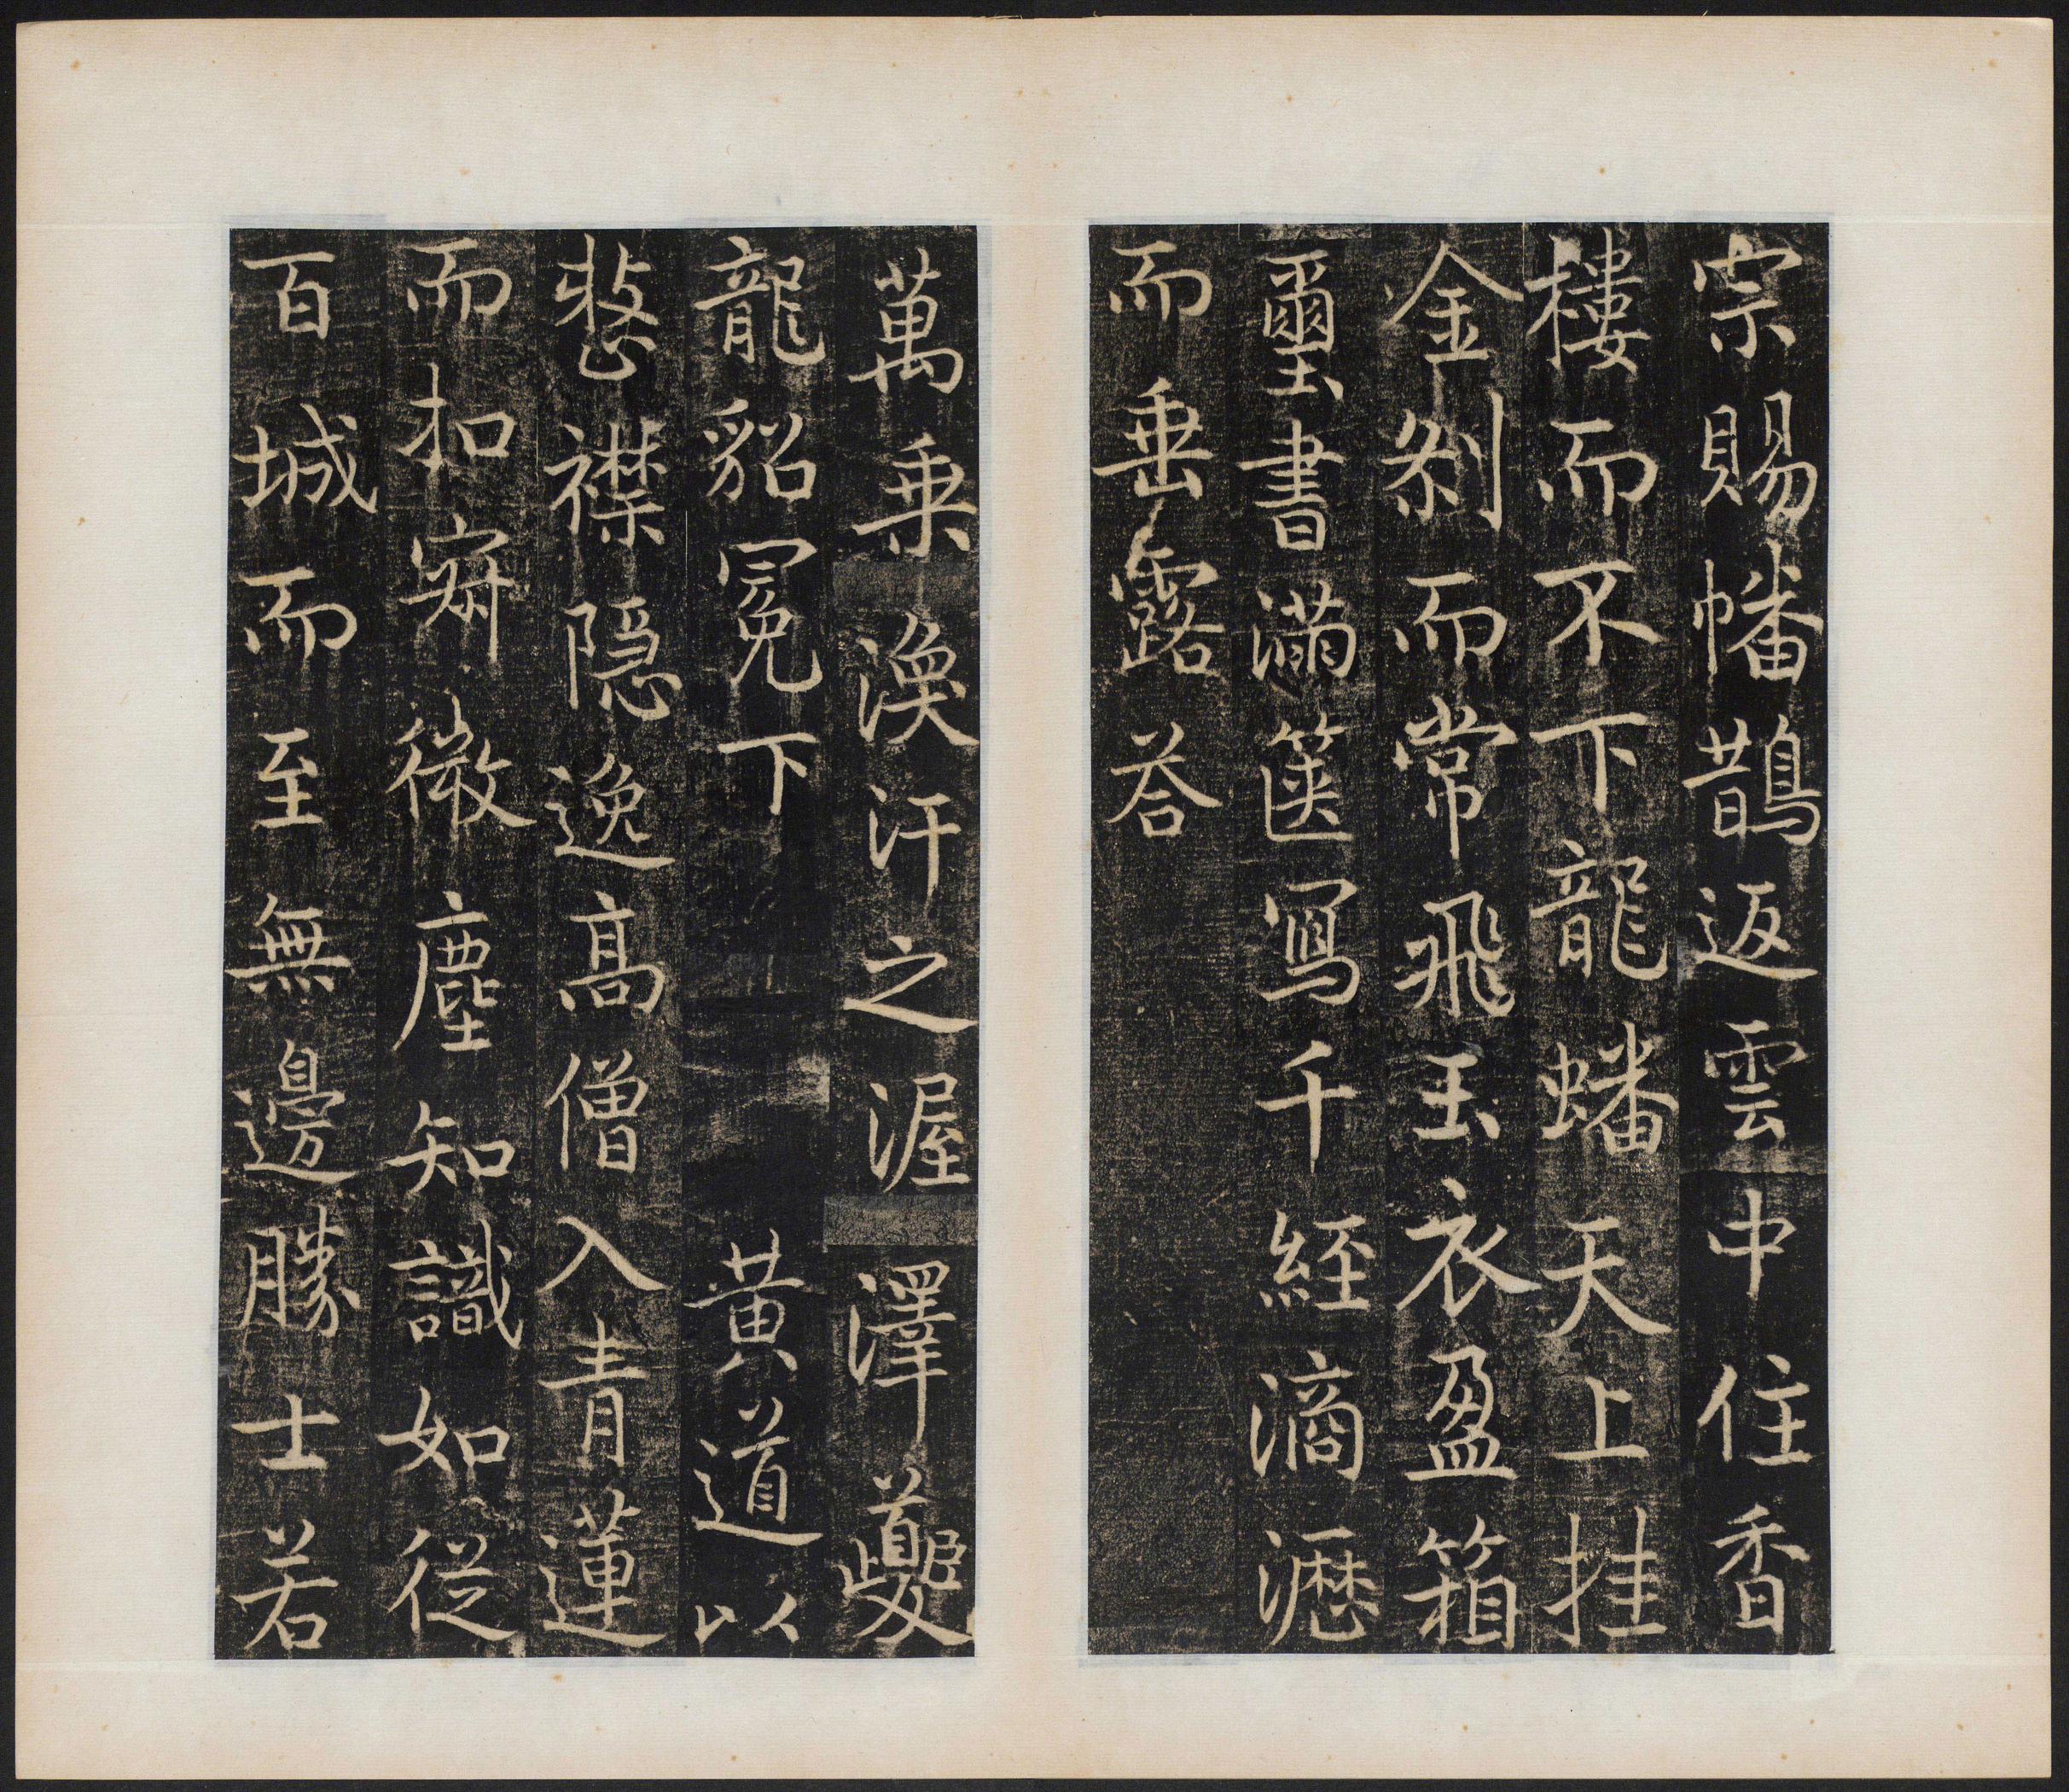 宗賜幡鵲返雲中住香
樓而不下龍蟠天上挂
金剎而常飛玉衣盈箱
璽書滿篋寫千經滴瀝
而垂露荅
萬乗渙汗之渥澤夔
龍貂冕下黄道以
整襟隠逸髙僧入青蓮
而扣寂微塵知識如從
百城而至無邊勝士若